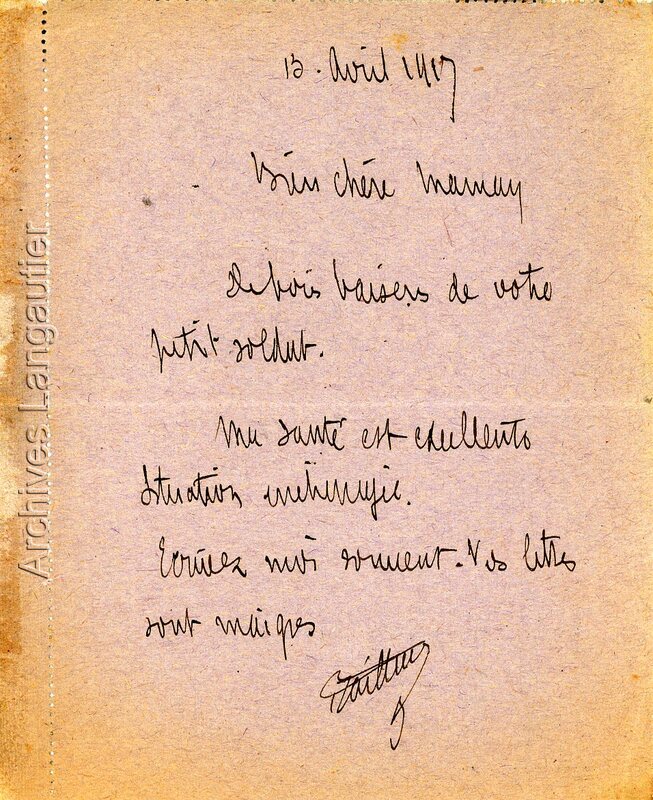 13. Avril 1917
Bien chère Maman
De bons baisers de votre
petit soldat.
Ma santé est excellente
Situation
Ecrivez moi souvent. Vos lettres
sont maigres
Archives Langautier